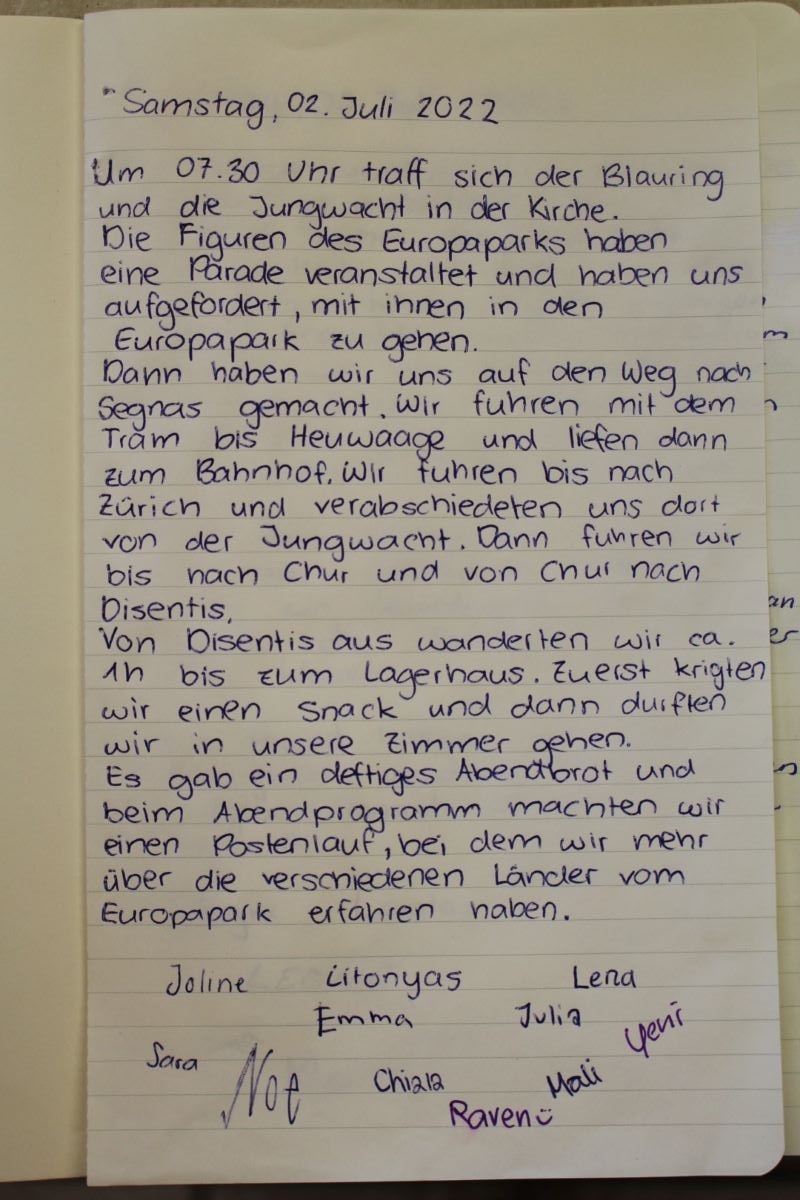 Samstag, 02. Juli 2022
Um 07.30 Uhr traff sich der Blauring
und die Jungwacht in der Kirche.
Die Figuren des Europaparks haben
eine Parade veranstaltet und haben uns
aufgefordert, mit ihnen in den
Europapark zu gehen.
Dann haben wir uns auf den Weg nach
Segnas gemacht. Wir fuhren mit dem
Tram bis Heuwaage und liefen dann
zum Bahnhof. Wir fuhren bis nach
Zürich und verabschiedeten uns dort
von der Jungwacht. Dann fuhren wir
bis nach Chur und von Chur nach
Disentis.
Von Disentis aus wanderten wir ca.
1h bis zum Lagerhaus. Zuerst krigten
wir einen Snack und dann durften
wir in unsere Zimmer gehen.
Es gab ein deftiges Abendbrot und
beim Abendprogramm machten wir
einen Postenlauf, bei dem wir mehr
über die verschiedenen Länder vom
Europapark erfahren haben.
Joline Litonyas Lena
Emma Julia Yeni
Sara Noe Chiara Mali
Raven